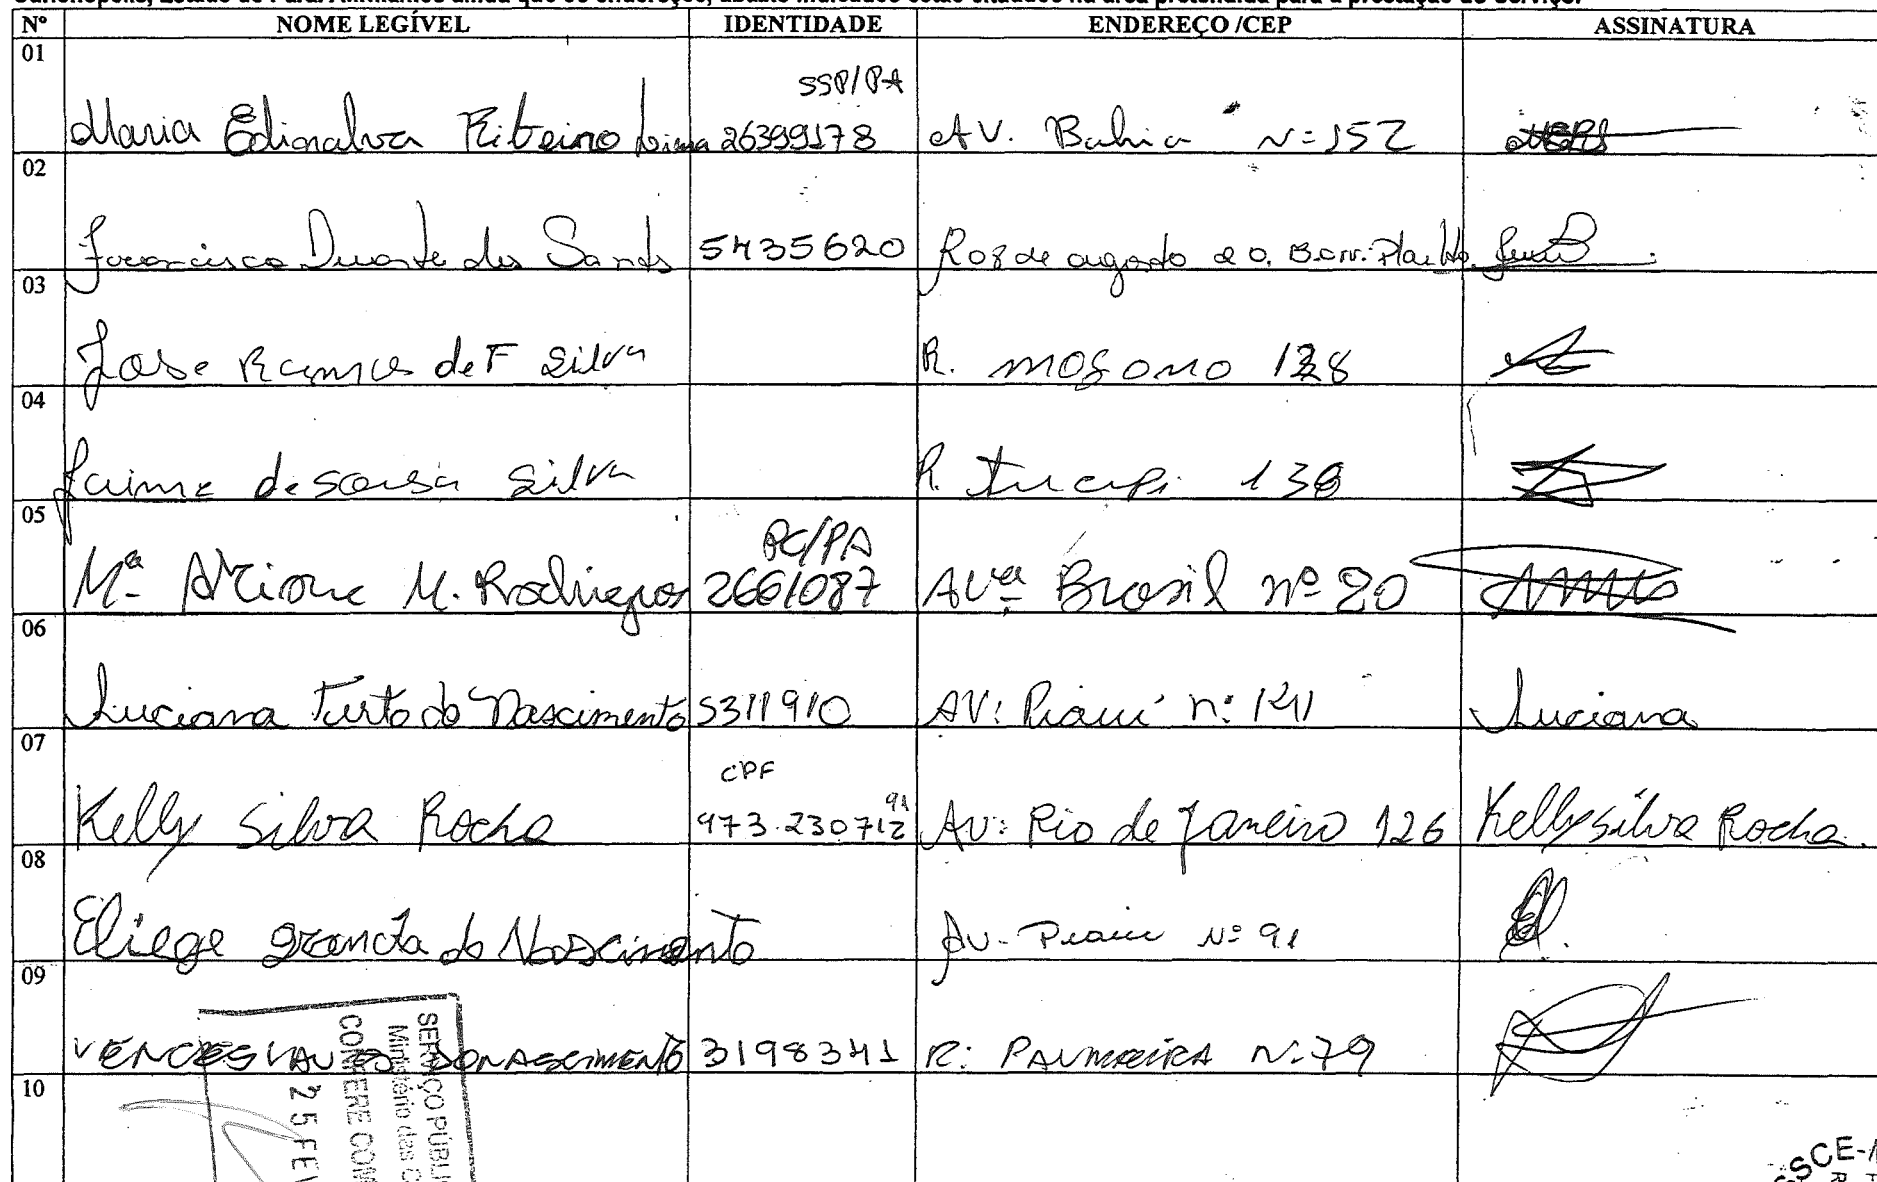 Nº NOME LEGÍVEL IDENTIDADE ENDEREÇO /CEP ASSINATURA
01
SSP/PA
Maria Edinalva Ribeiro 26399178 AV. Bahia N=152
02
Francisco Duarte dos Santos 5435620 R 08 de agosto
03
Jose Ramos de F Silva R. 
04
Jaime de sousa Silva R. Tucupi
05
PC/PA
Mª M. Rodrigues 2661087 AVª Brasil nº 20
06
Luciana Furto do Nascimento 5311910 AV: Piauí nº Luciana
07
CPF
91
Kelly Silva Rocha 973.230712 AV: Rio de Janeiro 126 Kelly silva Rocha.
08
Eliege do Nascimento AV- Piaui Nº 91
09
VENCESLAU DO NASCIMENTO 3198341 R: PALMEIRA N:79
10
SERVIÇO PÚBLI
Ministério das C
CONFERE COM
25 FEV
SCE-